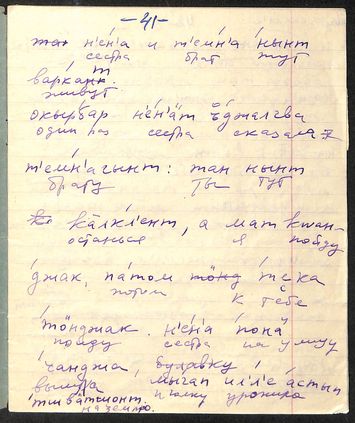 -41-
н'е́н'а и т'емн'а ны́нт
сестра брат тут
варка́нт
живут
окы́рбар н'е́н'ӓт ӓ́джалгва
один раз сестра сказала
т'емн'агы́нт: тан ны́нт
брату ты тут
ка̄лкл'ент, а мат кwан-
останься я пойду
джак, па́том тӧнд т'ека
потом к тебе
тӧнджак. н'е́н'а по́на
пойду сестра на улицу
ча́нджа, була́вку
вышла мыган ил'л'е а́стып
иголку уронила
на землю.